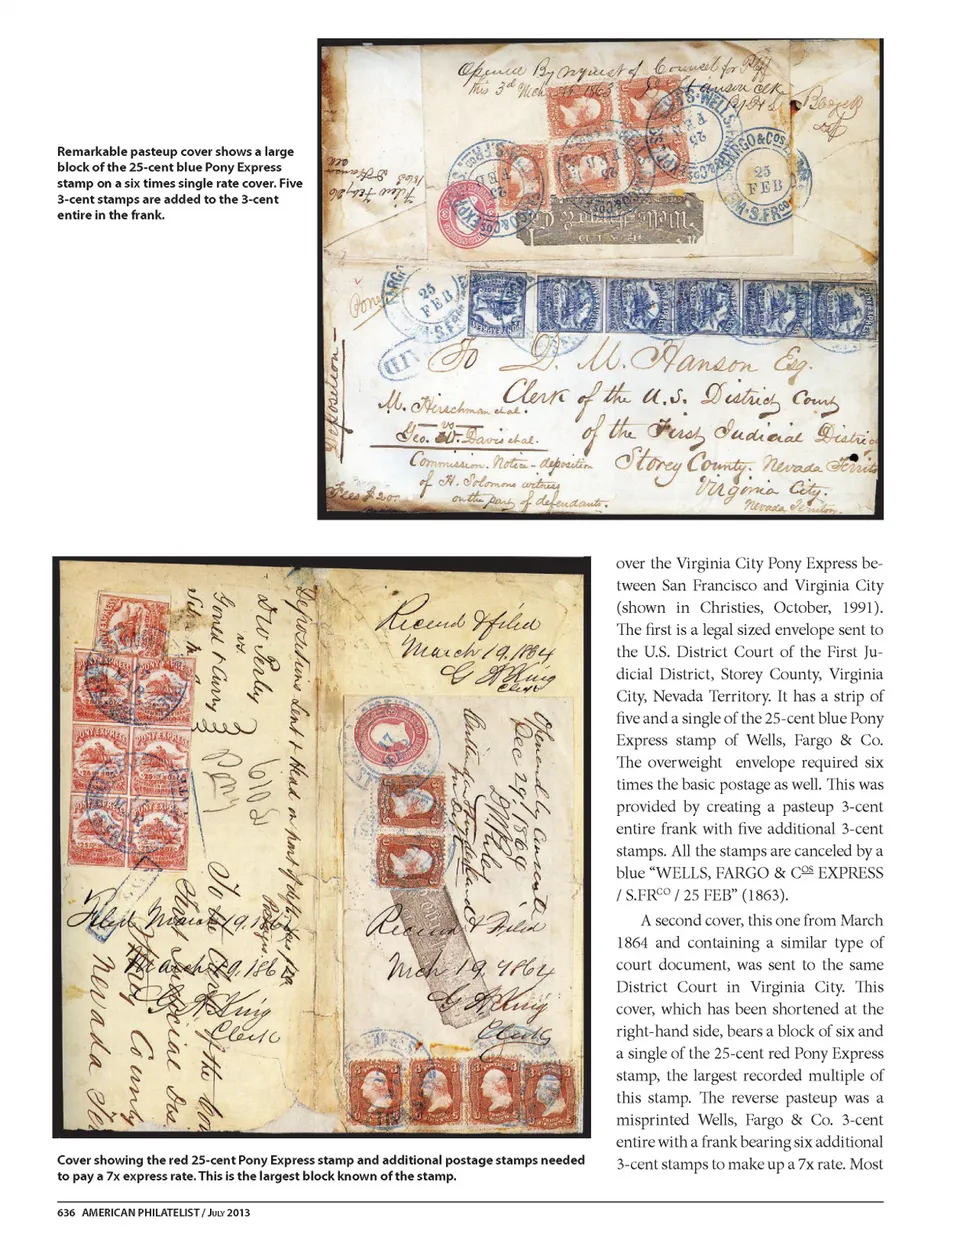 Remarkable pasteup cover shows a large
block of the 25-cent blue Pony Express
stamp on a six times single rate cover. Five
3-cent stamps are added to the 3-cent
entire in the frank.
Opened By request of Council for Plff
this 3d Mch 1863
25
FEB
Pony
Deposition
To D. M. Hanson Esq.
Clerk of the U.S. District Court
of the First Judicial District
Storey County. Nevada Territo
Virginia City.
Nevada Territory.
M. Hirschman et al.
vs
Geo. W. Davis et al.
Commission. Notice - deposition
of H. Solomons witness
on the part of defendants.
PONY EXPRESS
Record & filed
March 19. 1864
G A King
Clerk
D W Perley
vs
Gould & Curry
Pony
Filed March 19. 186
March 19. 186
G A King
Clerk
County
Nevada Ter
Record & Filed
Mch 19. 1864
G A King
Clerk
over the Virginia City Pony Express be-
tween San Francisco and Virginia City
(shown in Christies, October, 1991).
The first is a legal sized envelope sent to
the U.S. District Court of the First Ju-
dicial District, Storey County, Virginia
City, Nevada Territory. It has a strip of
five and a single of the 25-cent blue Pony
Express stamp of Wells, Fargo & Co.
The overweight envelope required six
times the basic postage as well. This was
provided by creating a pasteup 3-cent
entire frank with five additional 3-cent
stamps. All the stamps are canceled by a
blue “WELLS, FARGO & COS EXPRESS
/ S.FRCO / 25 FEB” (1863).
A second cover, this one from March
1864 and containing a similar type of
court document, was sent to the same
District Court in Virginia City. This
cover, which has been shortened at the
right-hand side, bears a block of six and
a single of the 25-cent red Pony Express
stamp, the largest recorded multiple of
this stamp. The reverse pasteup was a
misprinted Wells, Fargo & Co. 3-cent
entire with a frank bearing six additional
3-cent stamps to make up a 7x rate. Most
Cover showing the red 25-cent Pony Express stamp and additional postage stamps needed
to pay a 7x express rate. This is the largest block known of the stamp.
636 AMERICAN PHILATELIST / JULY 2013